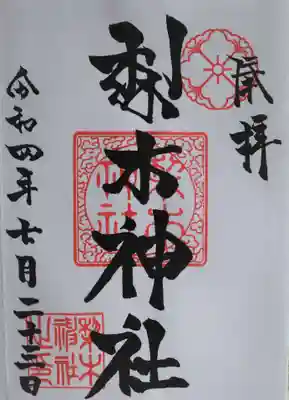 奉拝
梨木神社
梨木神社
令和四年七月二十三日
梨木神社之印